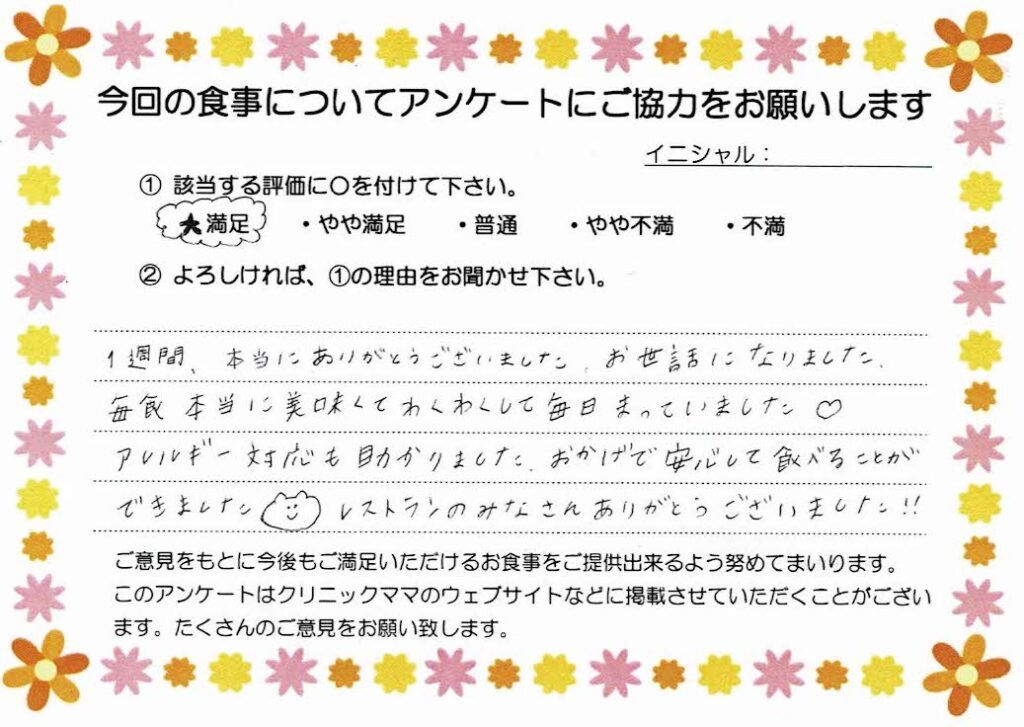 今回の食事についてアンケートにご協力をお願いします
イニシャル：
① 該当する評価に〇を付けて下さい。
大満足 ・やや満足 ・普通 ・やや不満 ・不満
② よろしければ、①の理由をお聞かせ下さい。
1週間、本当にありがとうございました。お世話になりました。
毎食 本当に美味くてわくわくして毎日まっていました♡
アレルギー対応も助かりました。おかげで安心して食べることが
できました レストランのみなさんありがとうございました!!
ご意見をもとに今後もご満足いただけるお食事をご提供出来るよう努めてまいります。
このアンケートはクリニックママのウェブサイトなどに掲載させていただくことがござい
ます。たくさんのご意見をお願い致します。